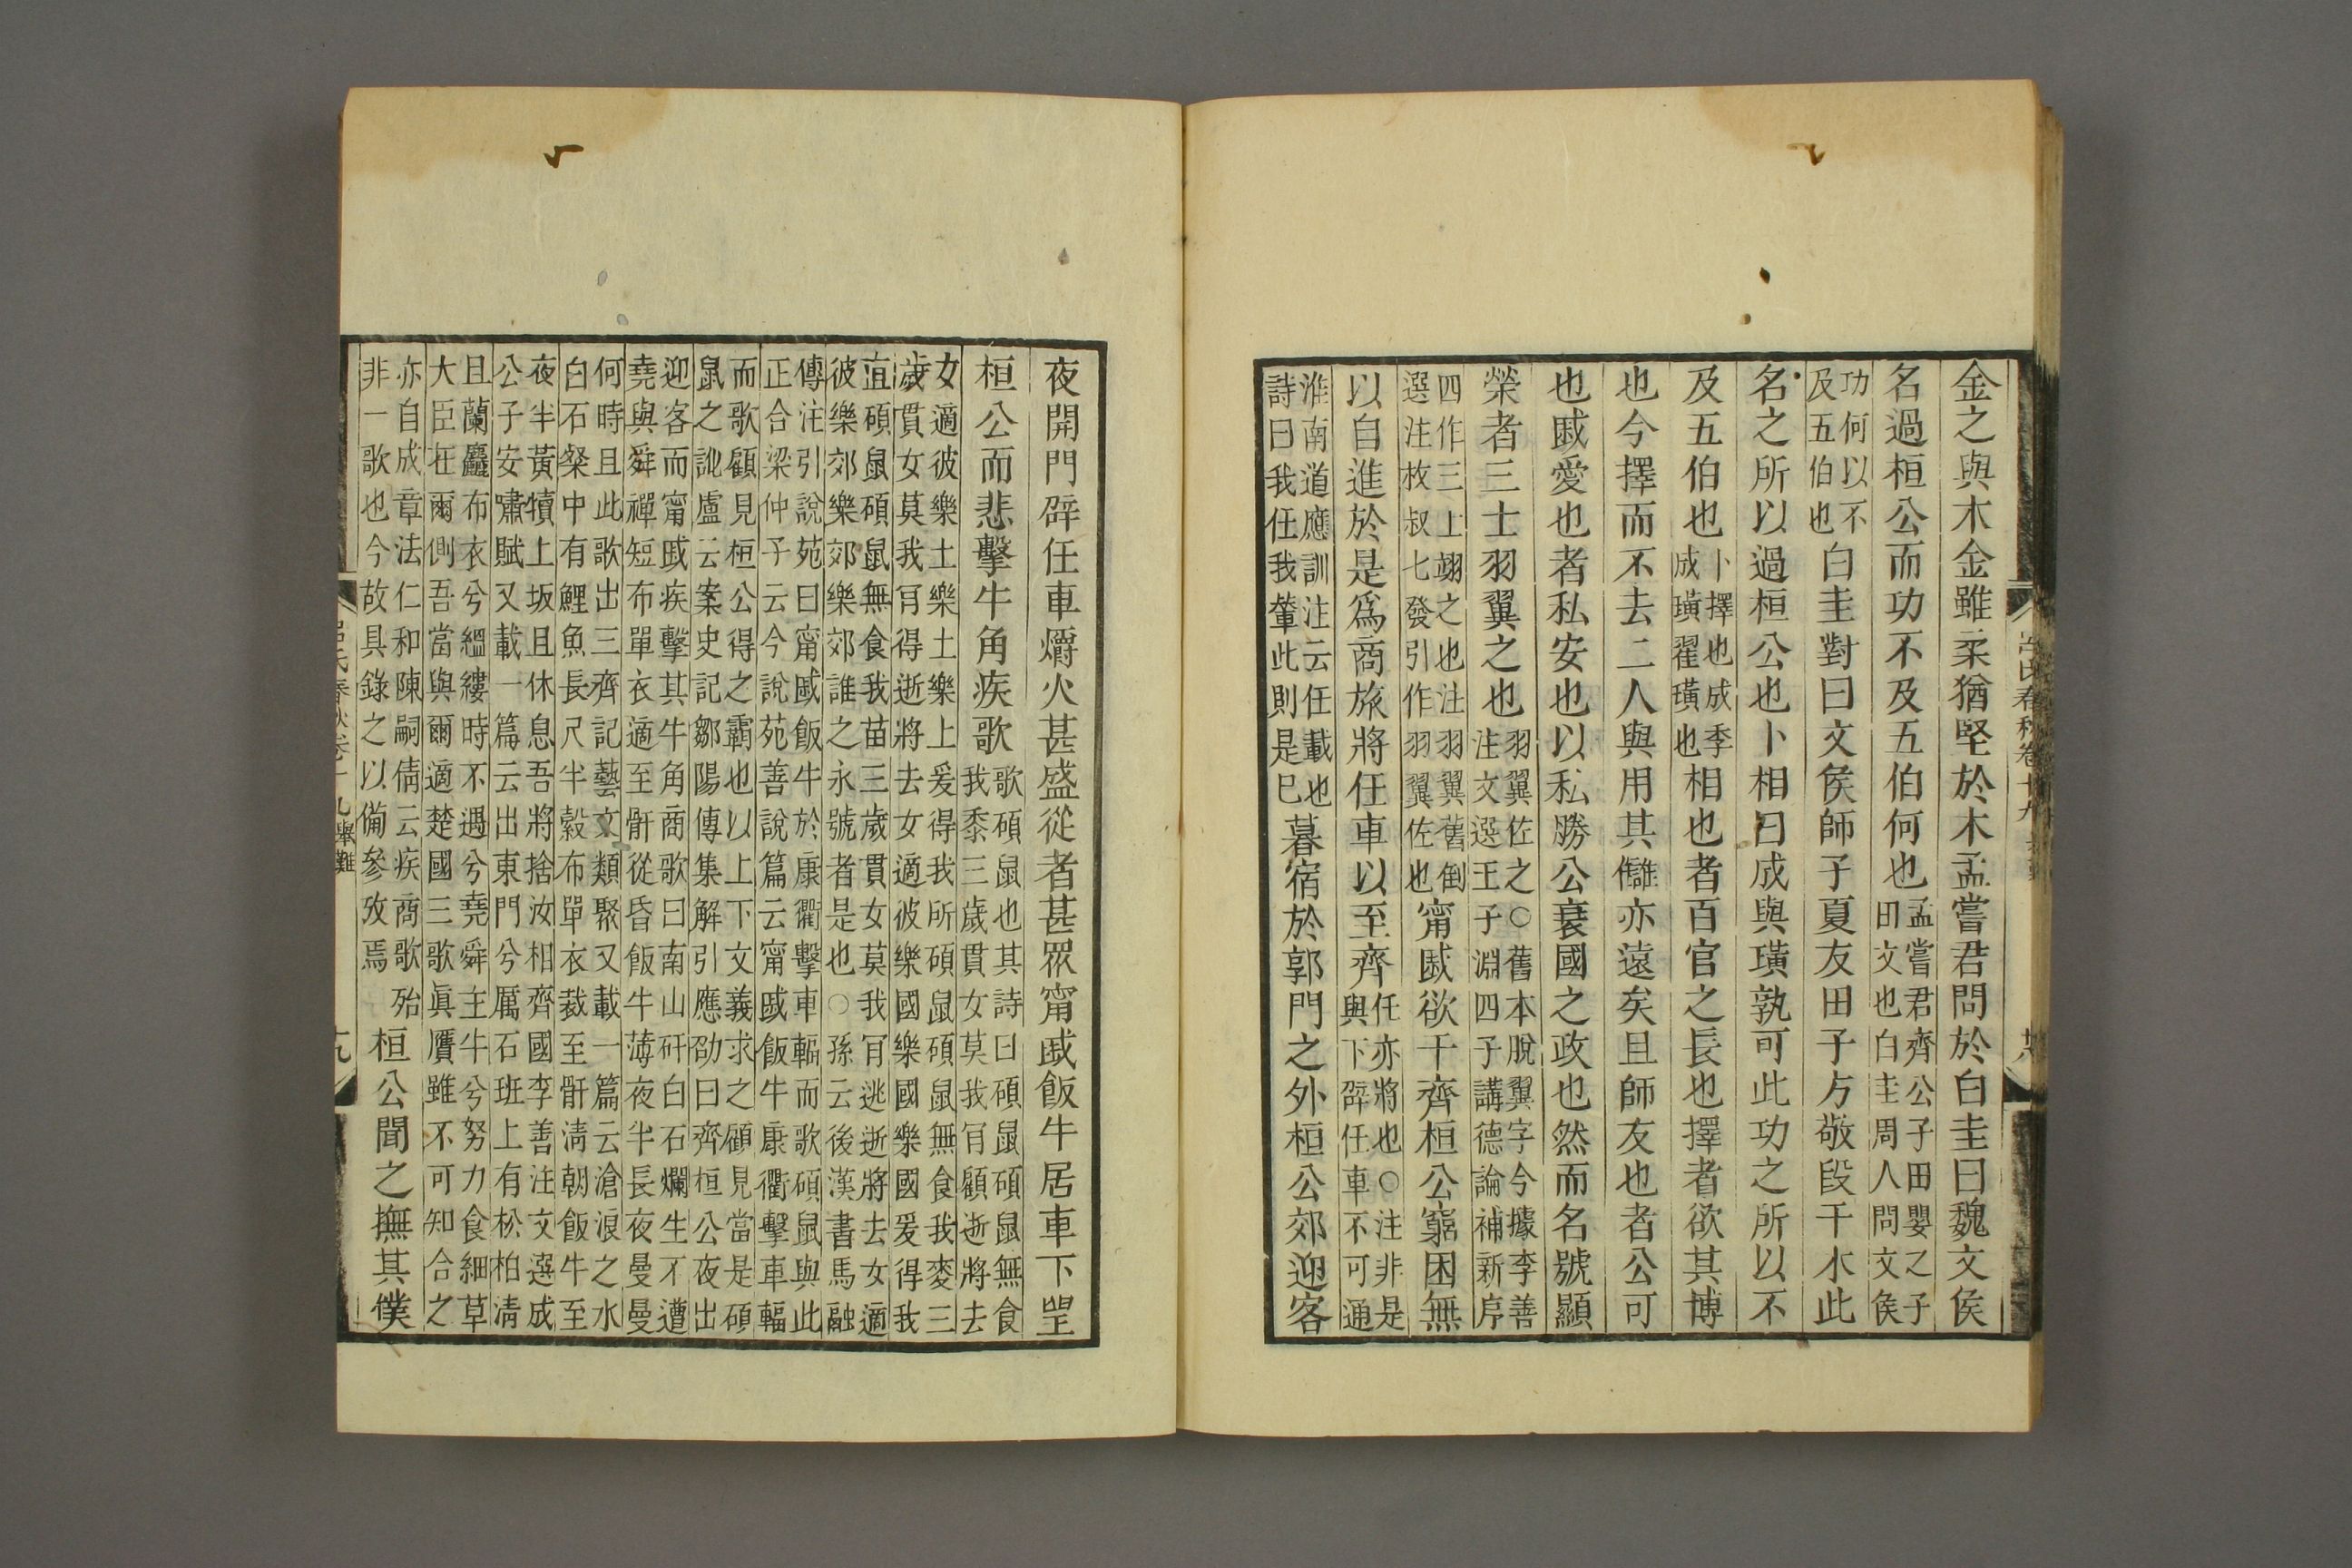 金之與木金雖柔猶堅於木孟嘗君問於白圭曰魏文侯
名過桓公而功不及五伯何也孟嘗君齊公子田嬰之子田文也白圭周人問文侯
功何以不及五伯也白圭對曰文侯師子夏友田子方敬段干木此
名之所以過桓公也卜相曰成與璜孰可此功之所以不
及五伯也卜擇也成季成璜翟璜也相也者百官之長也擇者欲其博
也今擇而不去二人與用其讎亦遠矣且師友也者公可
也戚愛也者私安也以私勝公衰國之政也然而名號顯
榮者三士羽翼之也羽翼佐之○舊本脫翼字今據李善注文選王子淵四子講德論補新序
四作三上翊之也注羽翼舊倒選注枚叔七發引作羽翼佐也甯戚欲干齊桓公窮困無
以自進於是爲商旅將任車以至齊任亦將也○注非是與下辟任車不可通
淮南道應訓注云任載也詩曰我任我輦此則是巳暮宿於郭門之外桓公郊迎客
夜開門辟任車爝火甚盛從者甚眾甯戚飯牛居車下望
桓公而悲擊牛角疾歌歌碩鼠也其詩曰碩鼠碩鼠無食我黍三歲貫女莫我肎顧逝將去
女適彼樂土樂土樂上爰得我所碩鼠碩鼠無食我麥三歲貫女莫我肎得逝將去女適彼樂國樂國樂國爰得我
直碩鼠碩鼠無食我苗三歲貫女莫我肎逃逝將去女適彼樂郊樂郊樂郊誰之永號者是也○孫云後漢書馬融
傳注引說苑曰甯戚飯牛於康衢擊車輻而歌碩鼠與此正合梁仲子云今說苑善說篇云甯戚飯牛康衢擊車輻
而歌顧見桓公得之霸也以上下文義求之顧見當是碩鼠之訛盧云案史記鄒陽傳集解引應劭曰齊桓公夜出
迎客而甯戚疾擊其牛角商歌曰南山矸白石爛生不遭堯與舜禪短布單衣適至骭從昏飯牛薄夜半長夜曼曼
何時旦此歌出三齊記藝文類聚又載一篇云滄浪之水白石粲中有鯉魚長尺半縠布單衣裁至骭淸朝飯牛至
夜半黃犢上坂且休息吾將捨汝相齊國李善注文選成公子安嘯賦又載一篇云出東門兮厲石班上有松柏淸
且蘭麤布衣兮縕縷時不遇兮堯舜主牛兮努力食細草大臣在爾側吾當與爾適楚國三歌眞贗雖不可知合之
亦自成章法仁和陳嗣倩云疾商歌殆非一歌也今故具錄之以備參攷焉桓公聞之撫其僕
呂氏春秋卷十九 舉難 十九